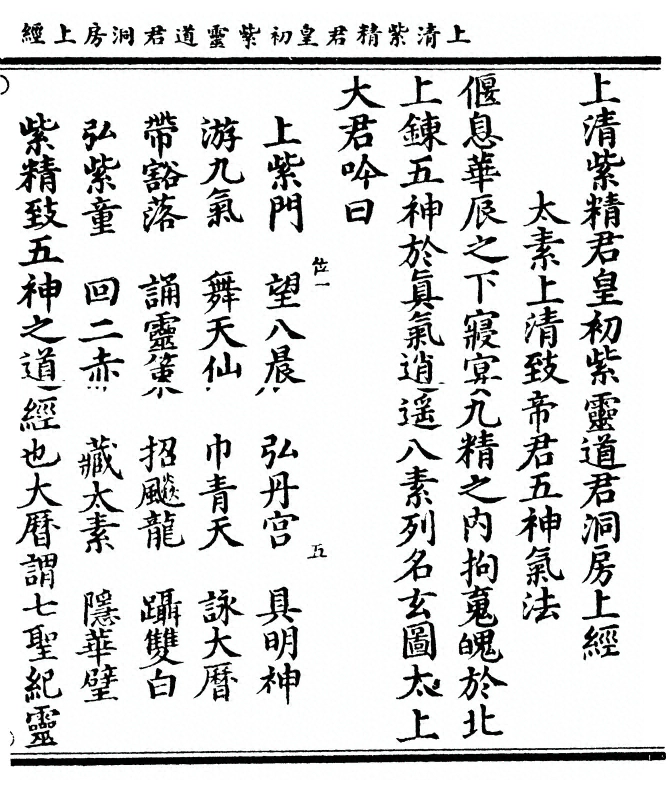 上清紫精君皇初紫靈道君洞房上經
上清紫精君皇初紫靈道君洞房上經
太素上清致帝君五神氣法
偃息華辰之下寢宴九精之內拘䰟魄於北
上鍊五神於眞氣逍遥八素列名玄圖太上
大君吟曰
位一 五
上紫門 望八晨 弘丹宮 具明神
游九氣 舞天仙 巾青天 詠大曆
帶豁落 誦靈策 招飈龍 躡雙白
弘紫童 回二赤 藏太素 隱華壁
紫精致五神之道經也大曆謂七聖紀靈